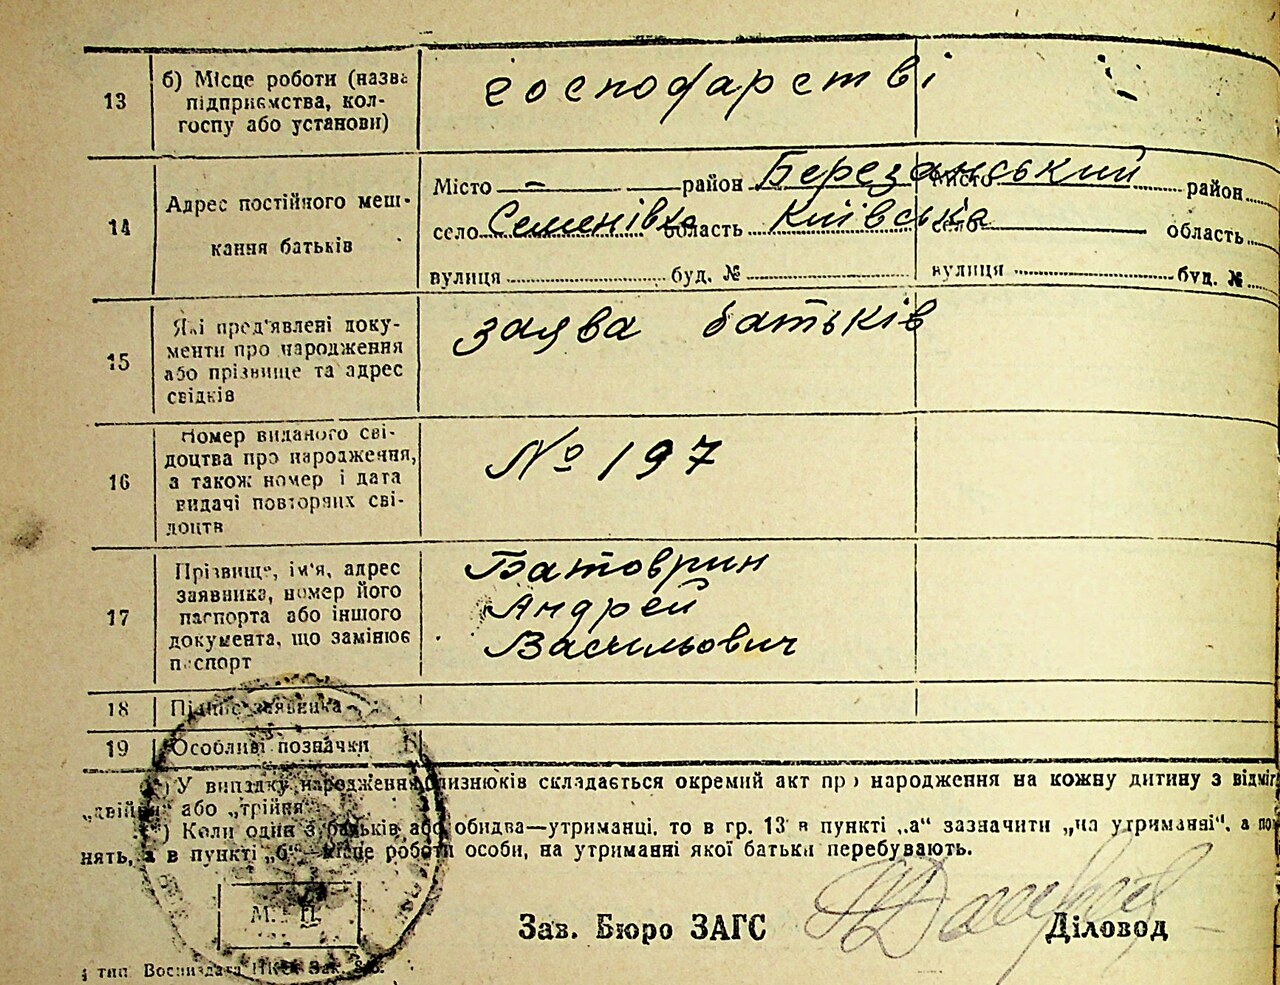 13
б) Місце роботи (назва
підприємства, кол-
госпу або установи)
господарстві
14
Адрес постійного меш-
кання батьків
Місто — район Березанський
село Семенівка область Київська
вулиця буд. №
місто район
село область
вулиця буд. №
15
Які пред'явлені доку-
менти про народження
або прізвище та адрес
свідків
заява батьків
16
Номер виданого сві-
доцтва про народження,
а також номер і дата
видачі повторних сві-
доцтв
№ 197
17
Прізвище, ім'я, адрес
заявника, номер його
паспорта або іншого
документа, що замінює
паспорт
Батоврин
Андрей
Васильович
18
Підпис заявника
19
Особливі позначки
) У випадку народження близнюків складається окремий акт про народження на кожну дитину з відміт
„двійня" або „трійня"
) Коли один з батьків або обидва—утриманці, то в гр. 13 в пункті „а" зазначити „на утриманні", а по
нять, а в пункті „б"—місце роботи особи, на утриманні якої батьки перебувають.
М. П.
Зав. Бюро ЗАГС
Діловод
тип. Воениздата НКО. Зак.